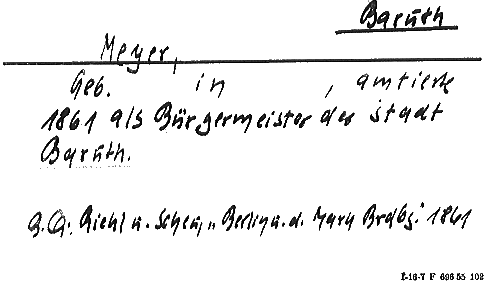 Baruth
Meyer,
Geb. in , amtierte
1861 als Bürgermeister der Stadt
Baruth.
Q.: Riehl u. Scheu, „Berlin u. d. Mark Brdbg." 1861
I-16-7 F 696 55 102